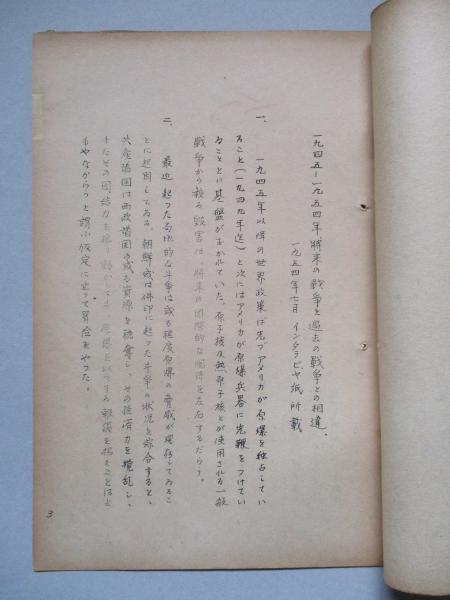 一九四五—一九五四年将来の戦争と過去の戦争との相違.
一九五四年七月 インタラビヤ紙所載
一、 一九四五年以降の世界政策は先づアメリカが原爆を独占してい
ること(一九四九年迄)と次にはアメリカが原爆兵器に先鞭をつけてい
ることとに基盤がおかれていた。原子核及熱原子核とが使用される一般
戦争から被る毀害は、将来の国際的な関係を左右するだらう。
二、 最近起った局地的な斗争は或る程度原爆の脅威が現存してゐるこ
とに起因してゐる。朝鮮或は佛印に起った斗争の状況を綜合すると、
共産諸国は西欧諸国の或る資源を聴奪し、その経済力を攪乱し、
またその団結力を揺り動かしても 原爆を以つてする報復を招くことは
もやなからうと謂ふ仮定に立って冒険をやった。
3